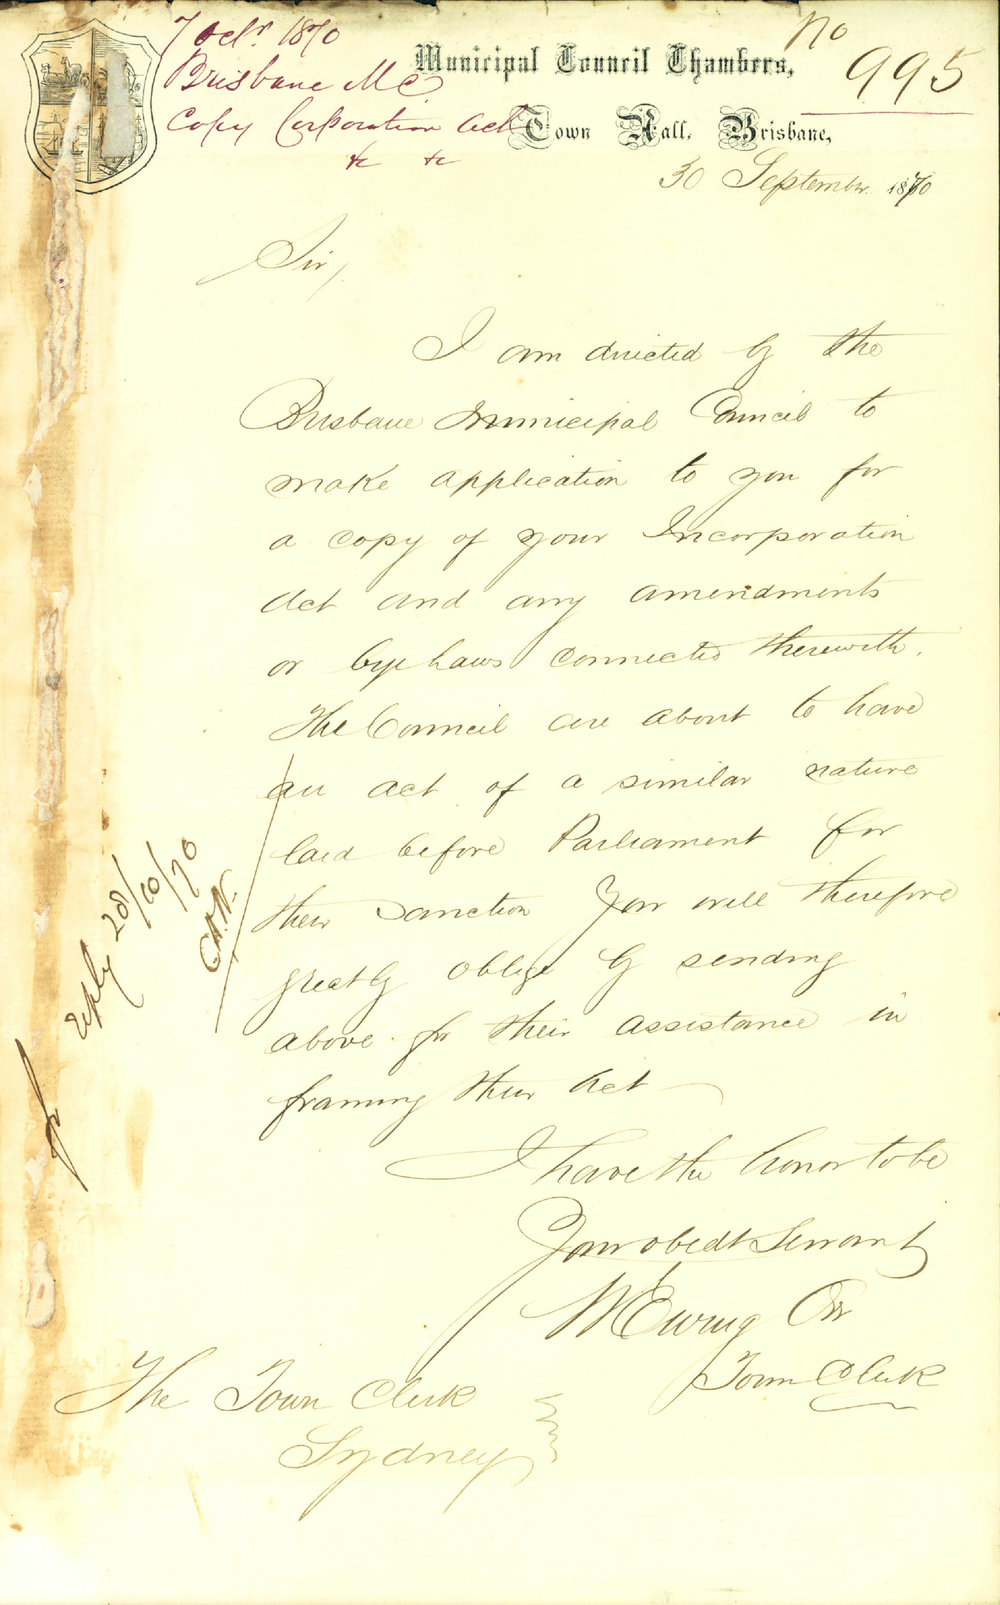 7 Octr. 1870
Brisbane M C
Copy Corporation Act
&c &c
No
995
Municipal Council Chambers,
Town Hall, Brisbane,
30 September 1870
Sir,
I am directed by the
Brisbane Municipal Council to
make application to you for
a copy of your Incorporation
Act and any amendments
or bye laws connected therewith.
The Council are about to have
an act of a similar nature
laid before Parliament for
their sanction You will therefore
greatly oblige by sending
above for their assistance in
framing their Act
I have the honor to be
Your obedt Servant
W Ewing Orr
Town Clerk
The Town Clerk
Sydney
reply 28/10/70